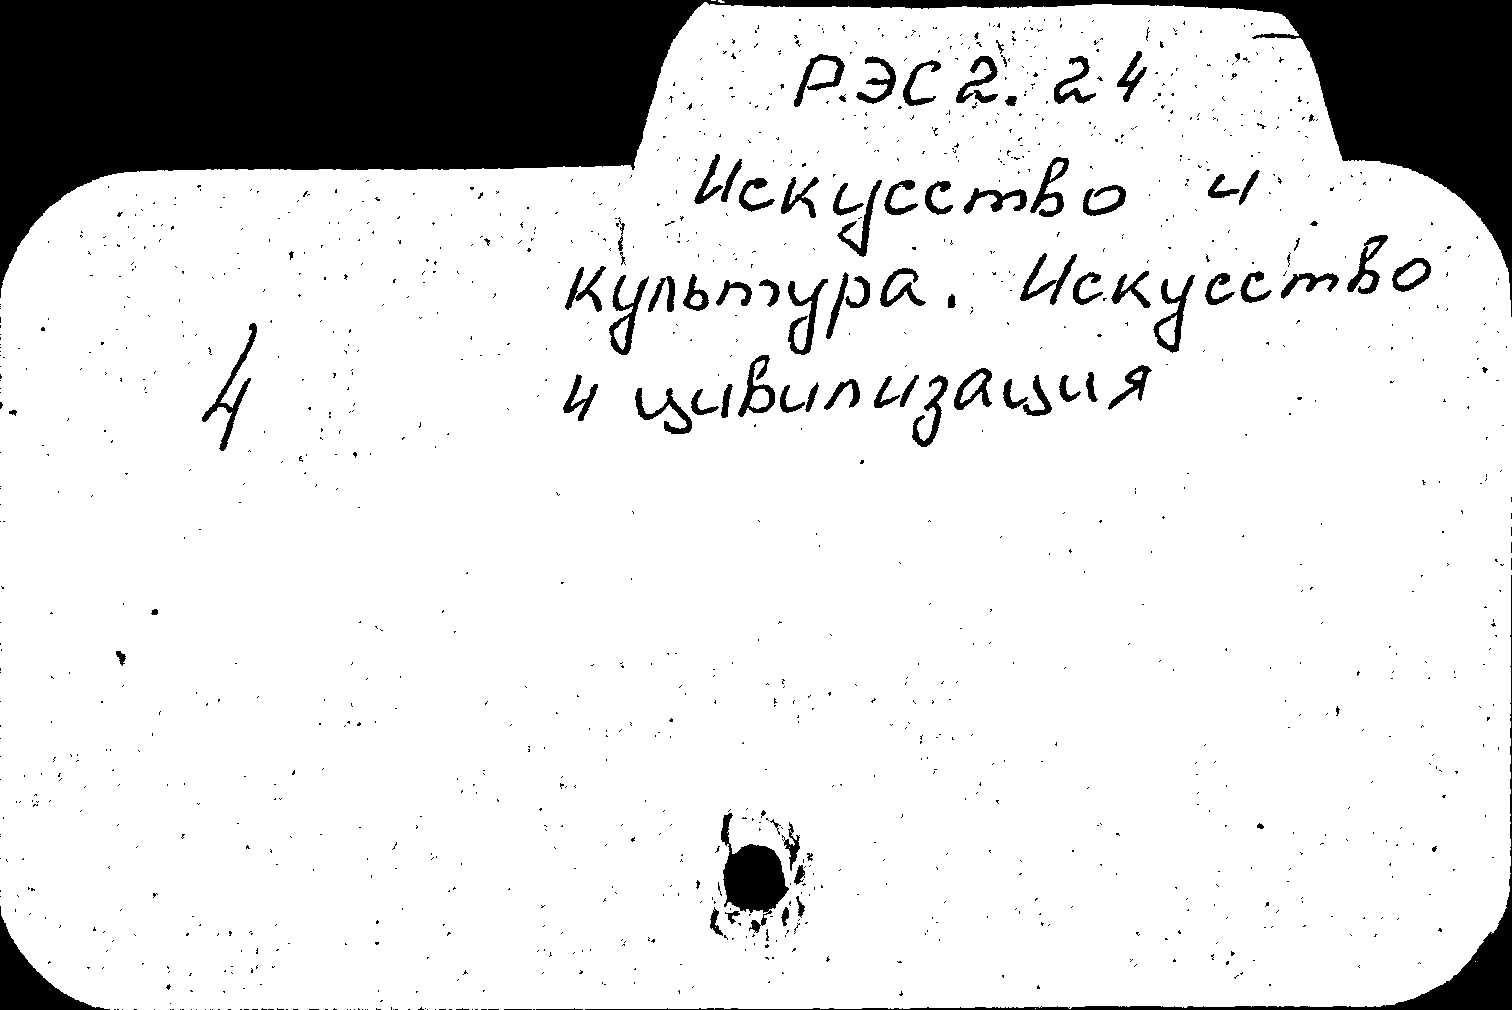 Р.ЭС 2. 24
Искусство и
культура. Искусство
4 и цивилизация